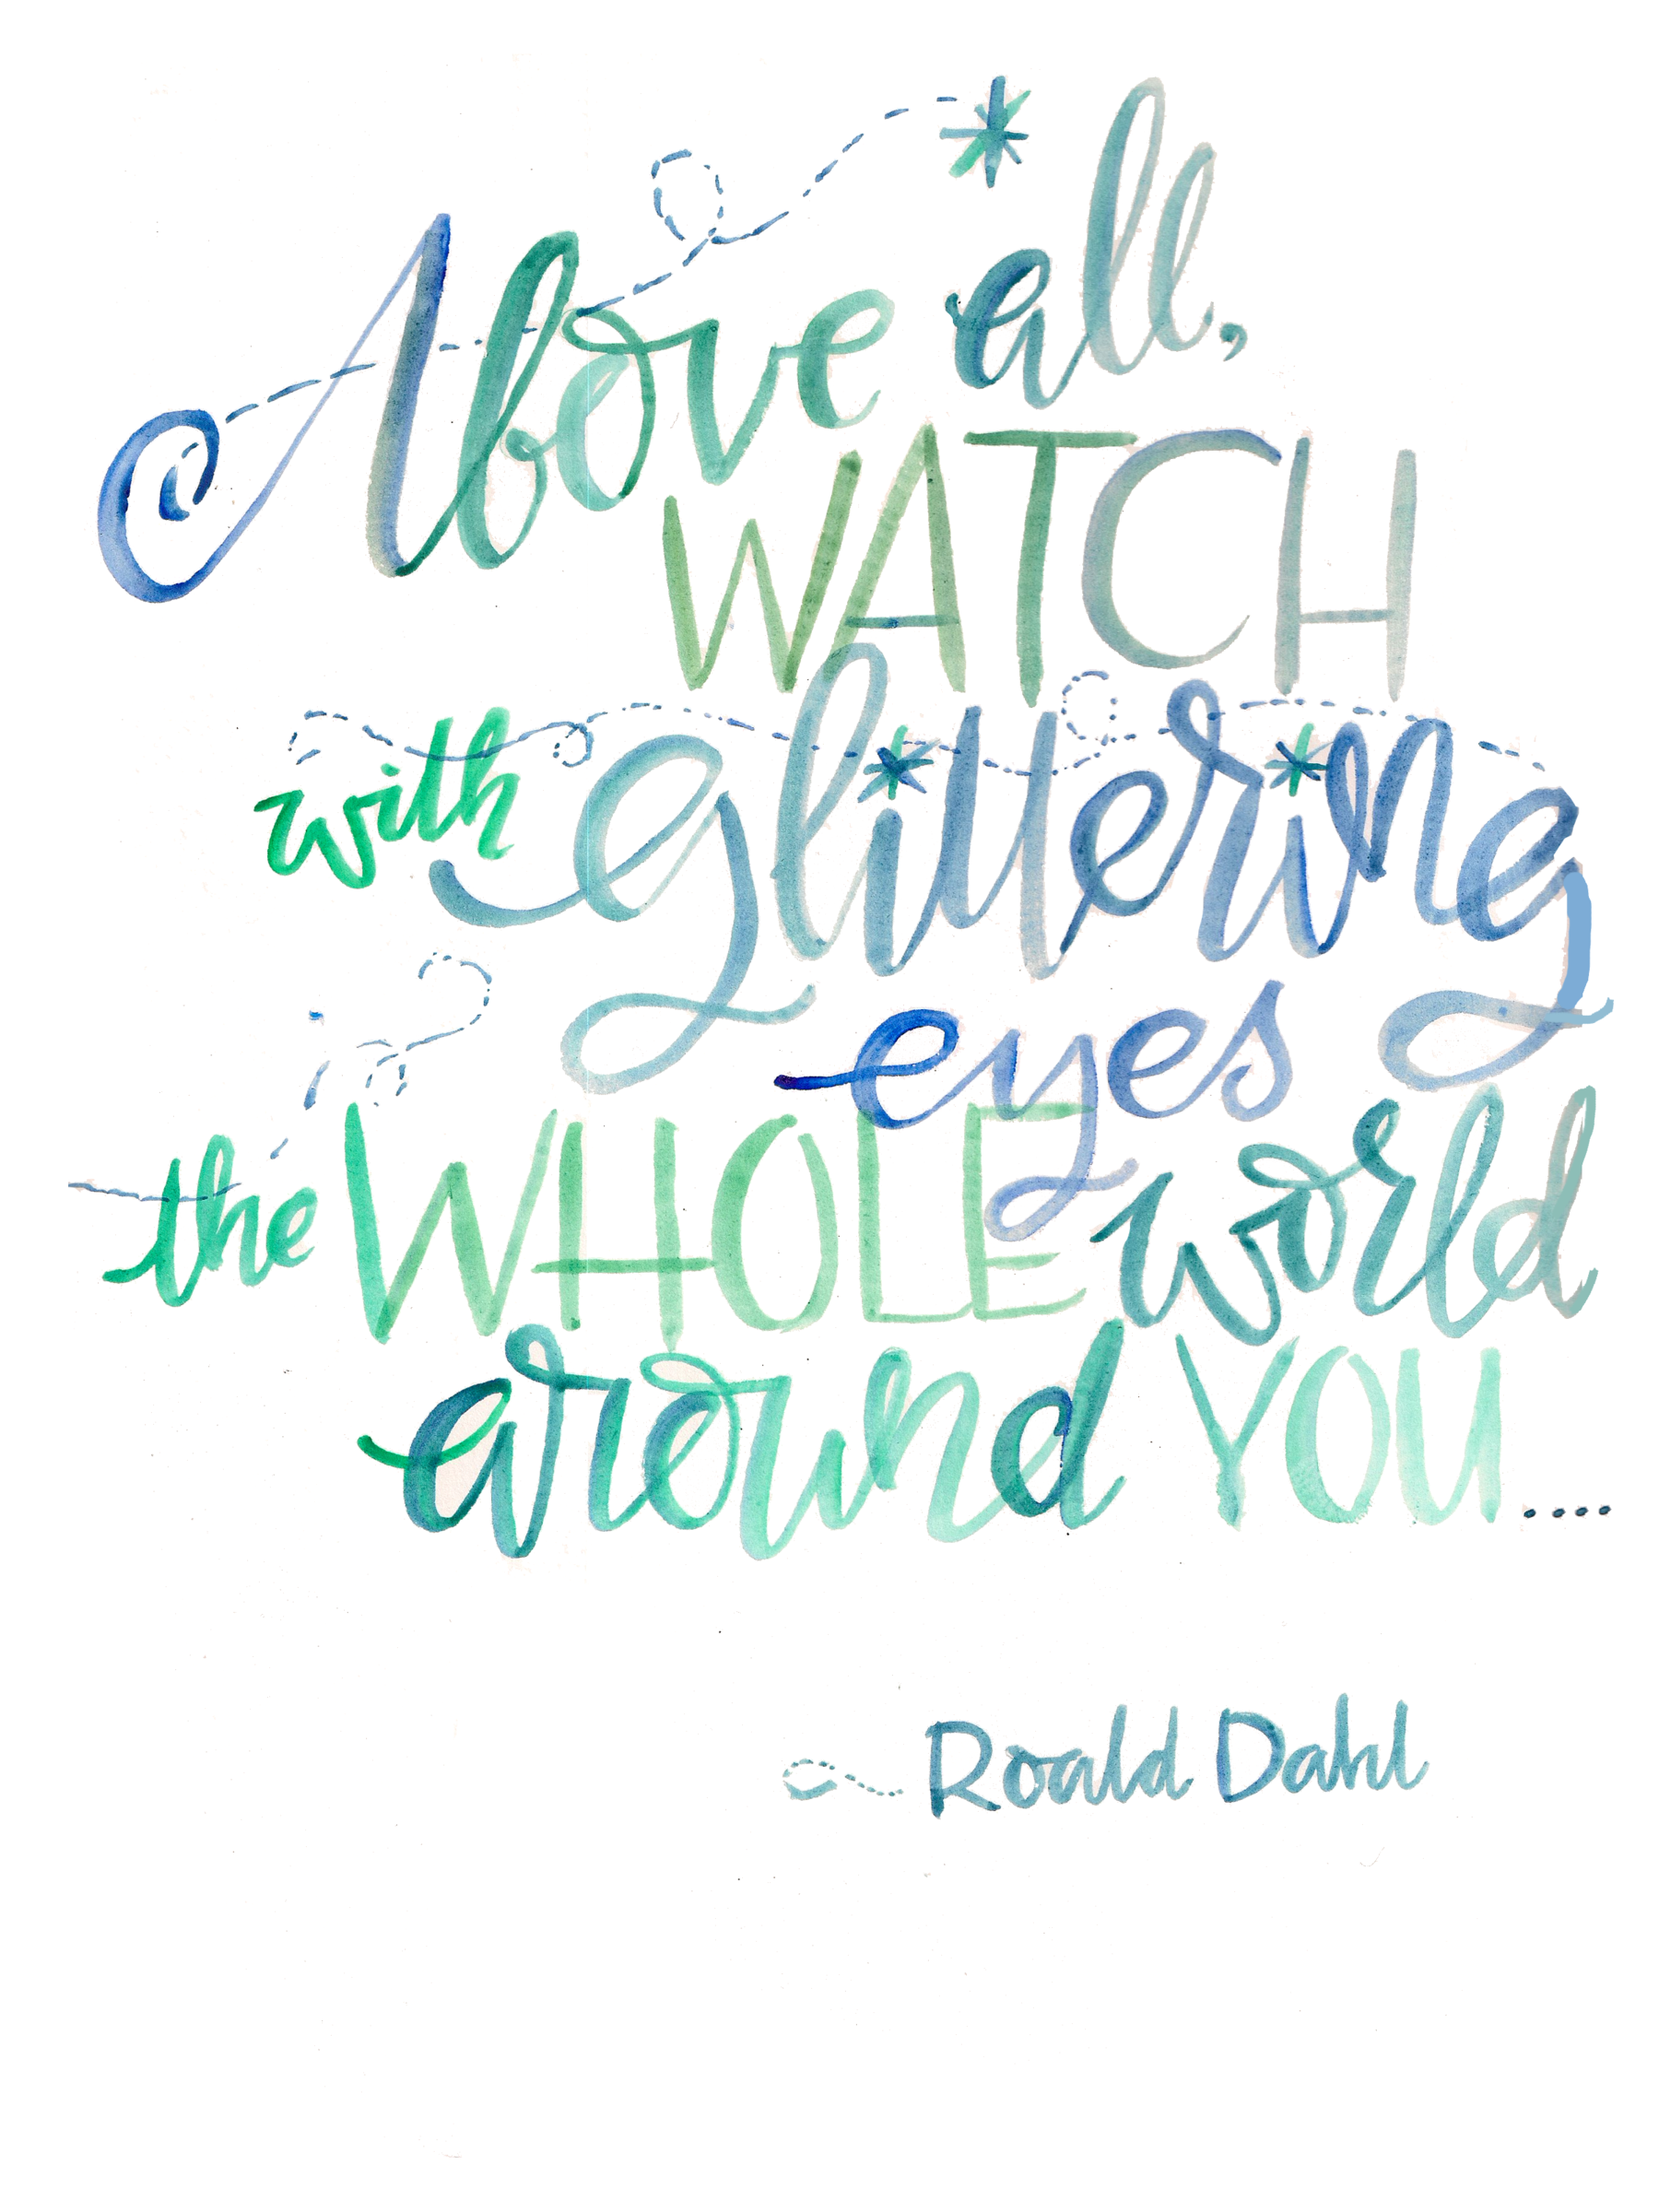 Above all,
WATCH
with glittering
eyes
the WHOLE world
around YOU....
~ Roald Dahl